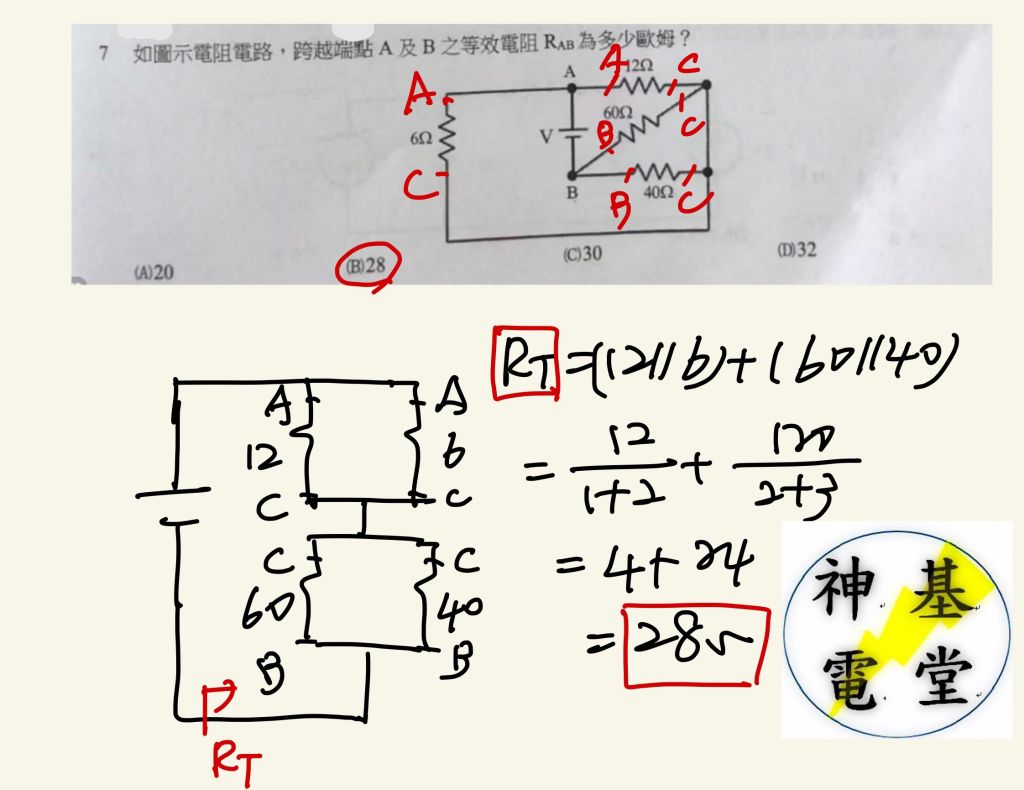 7 如圖示電阻電路，跨越端點 A 及 B 之等效電阻 RAB 為多少歐姆？
A A 12Ω C
A 60Ω
6Ω V B C
C B B 40Ω C
(A)20 (B)28 (C)30 (D)32
RT =(12//6)+(60//40)
A A
12 6
C C
= 12/1+2 + 120/2+3
C C
60 40
B B
= 4+24
= 28Ω
RT
神基
電堂